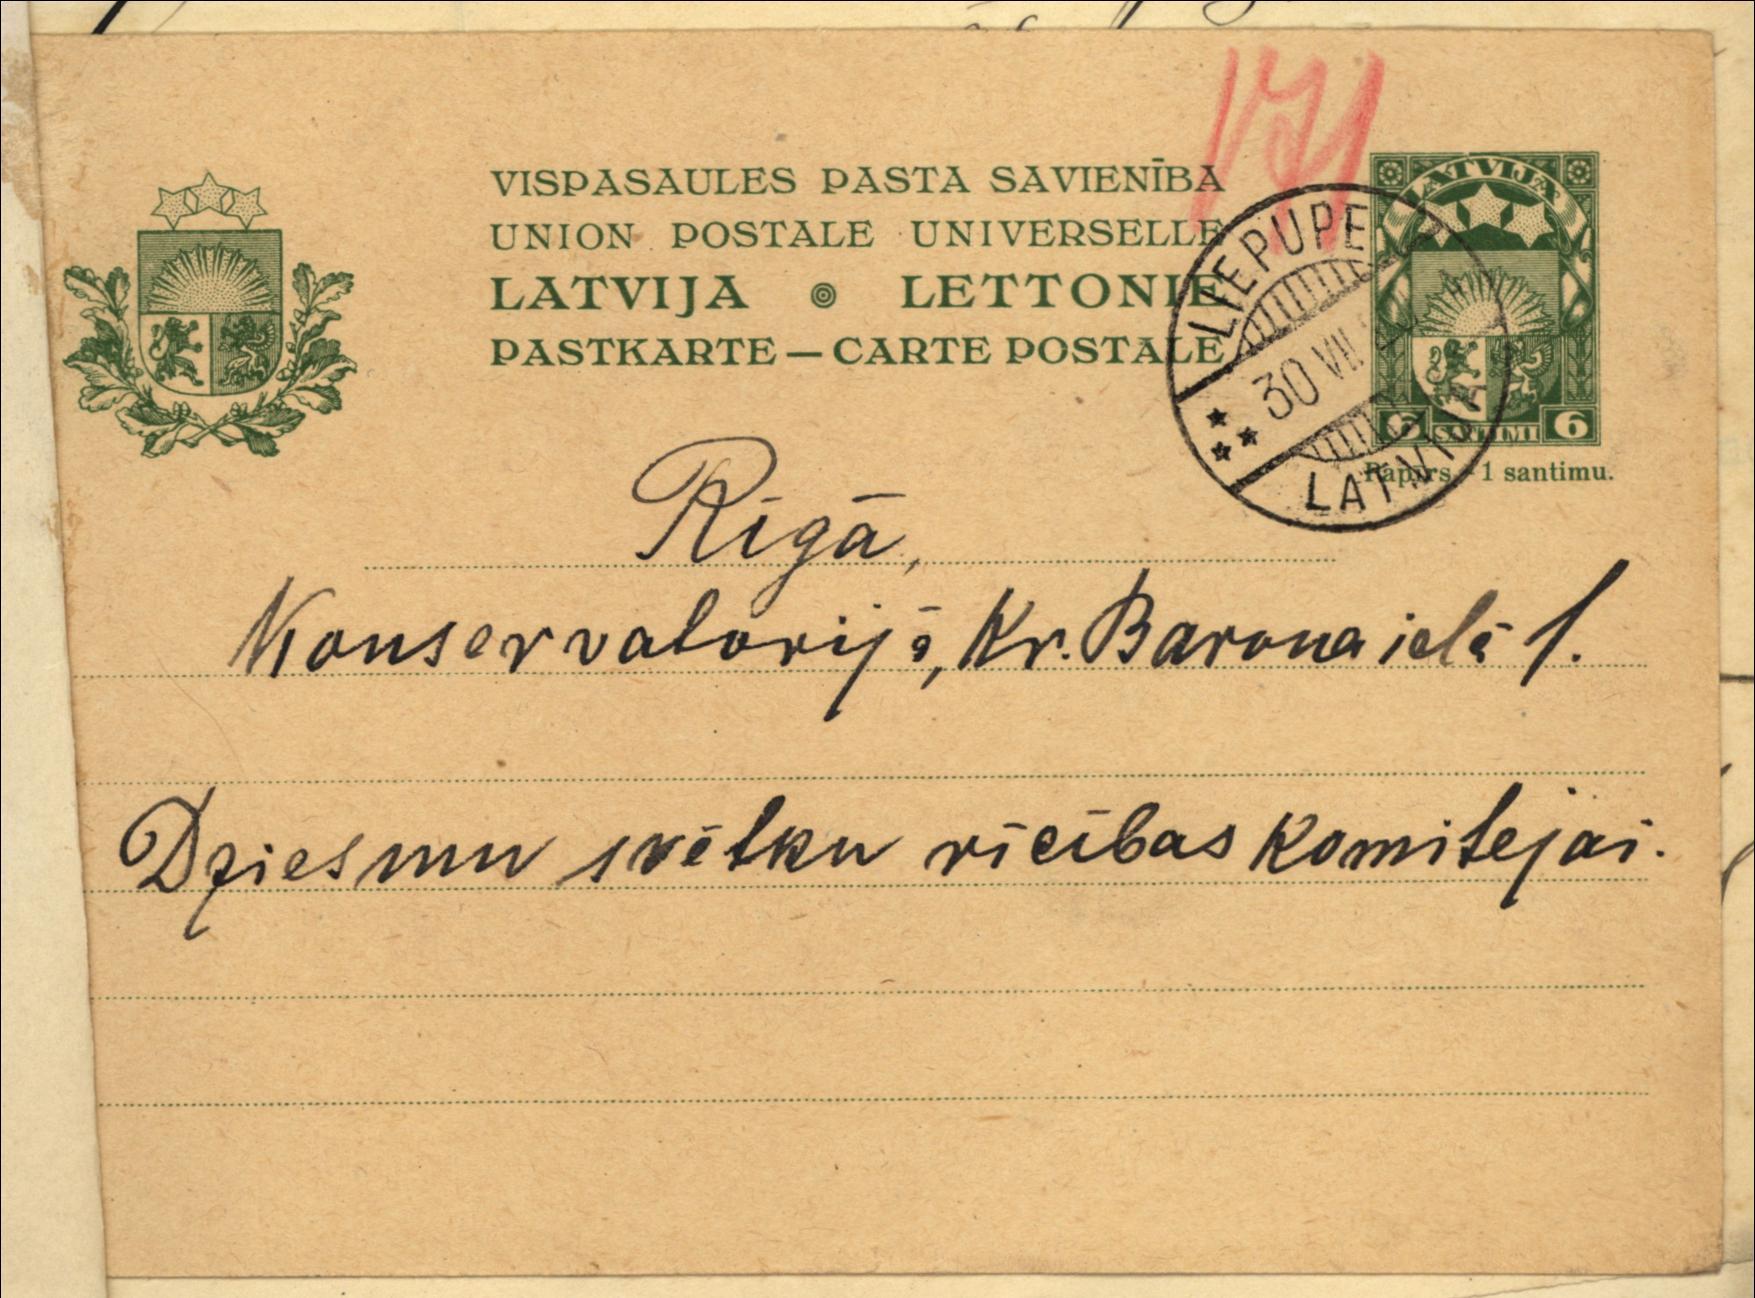 171
VISPASAULES PASTA SAVIENĪBA
UNION POSTALE UNIVERSELLE
LATVIJA LETTONIE
PASTKARTE — CARTE POSTALE
LATVIJA
6 SANTIMI 6
Papīrs - 1 santimu.
LIEPUPE
30 VII
LATVIJA
Rīgā,
Konservatorijā, Kr. Barona ielā 1.
Dziesmu svētku rīcības Komitejai.